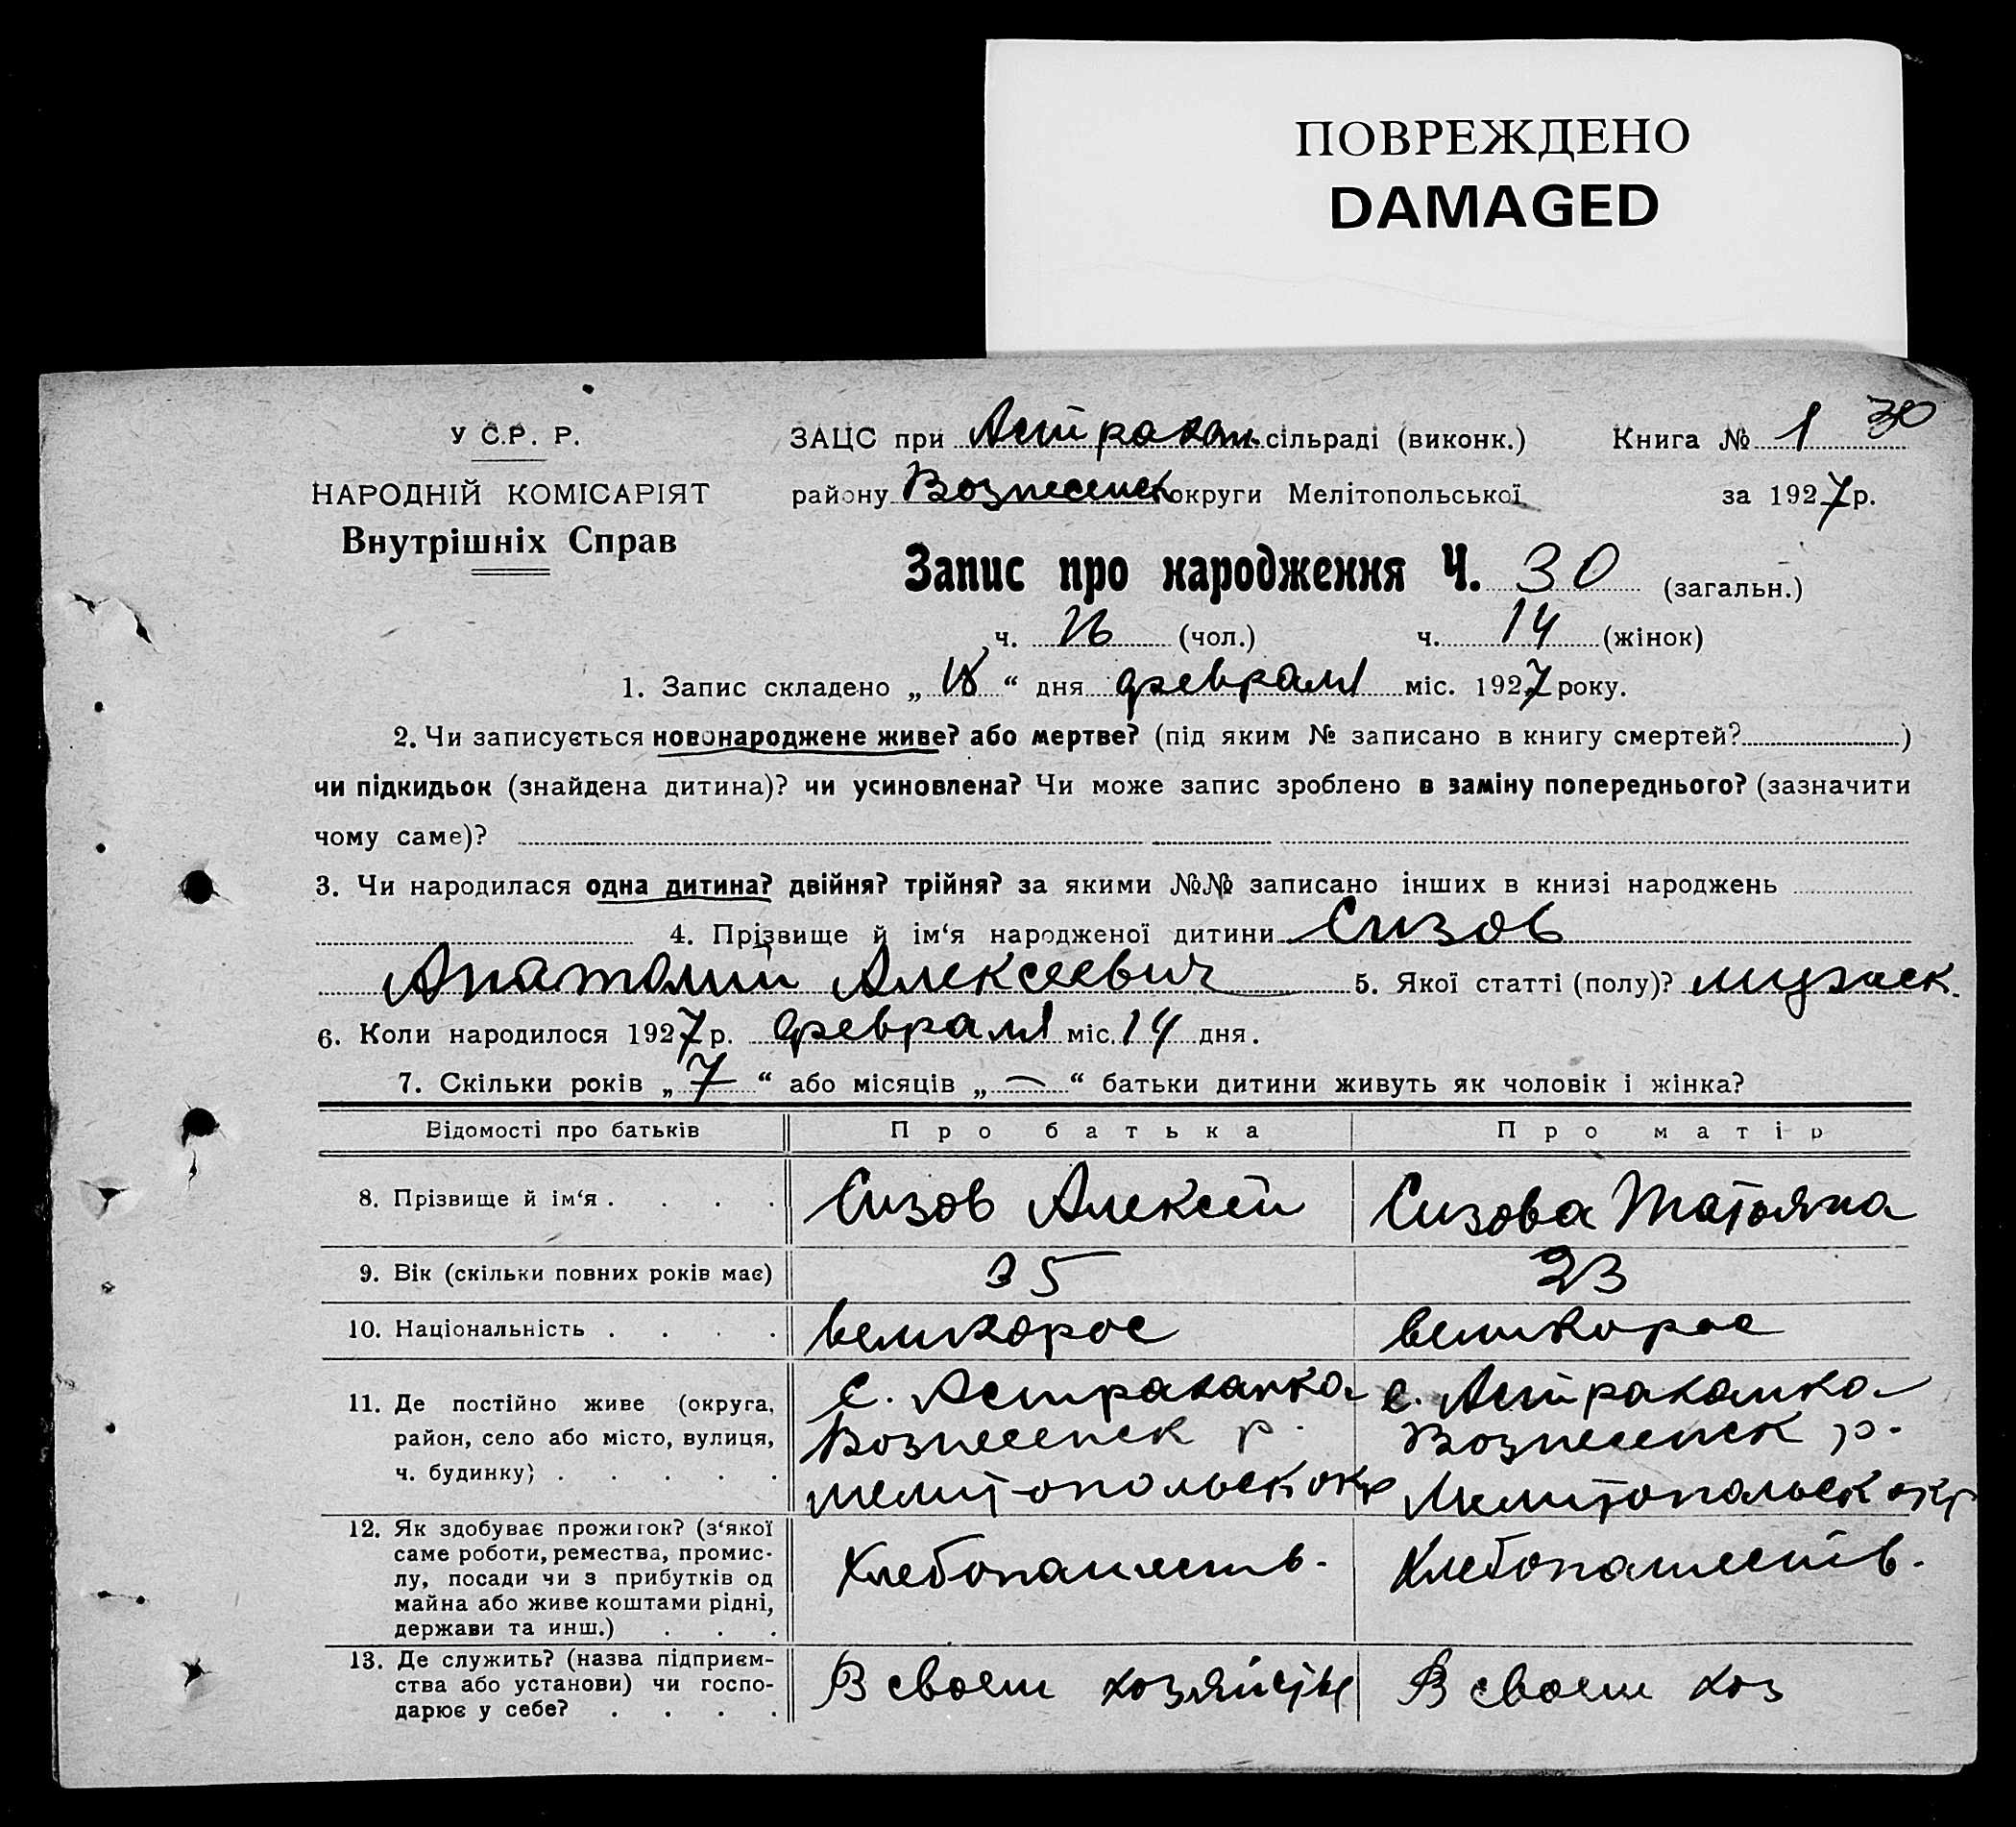 ПОВРЕЖДЕНО
DAMAGED
30
У С.Р. Р.
ЗАЦС при Астрахан. сільраді (виконк.) Книга № 1
НАРОДНІЙ КОМІСАРІЯТ
району Вознесенск округи Мелітопольської за 1927 р.
Внутрішніх Справ
Запис про народження Ч. 30 (загальн.)
ч. 16 (чол.) ч. 14 (жінок)
1. Запис складено „ “ дня февраля міс. 1927 року.
2. Чи записується новонароджене живе? або мертве? (під яким № записано в книгу смертей? )
чи підкидьок (знайдена дитина)? чи усиновлена? Чи може запис зроблено в заміну попереднього? (зазначити
чому саме)?
3. Чи народилася одна дитина? двійня? трійня? за якими №№ записано інших в книзі народжень
4. Прізвище й ім‘я народженої дитини Сизов
Анатолий Алексеевич 5. Якої статті (полу)? мужск.
6. Коли народилося 1927 р. февраля міс. 14 дня.
7. Скільки років „ 7 “ або місяців „ — “ батьки дитини живуть як чоловік і жінка?
Відомості про батьків Про батька Про матір
8. Прізвище й ім‘я . . . . Сизов Алексей Сизова Татьяна
9. Вік (скільки повних років має) 35 23
10. Національність . . . . великорос великорос
11. Де постійно живе (округа, с. Астраханка с. Астраханка
район, село або місто, вулиця, Вознесенск р. Вознесенск р.
ч. будинку) . . . . . Мелитопольск окр Мелитопольск окр
12. Як здобуває прожиток? (з‘якої
саме роботи, ремества, промис- Хлебопашеств. Хлебопашеств.
лу, посади чи з прибутків од
майна або живе коштами рідні,
держави та инш.) . . .
13. Де служить? (назва підприєм-
ства або установи) чи госпо- В своем хозяйстве В своем хоз
дарює у себе? . . . .